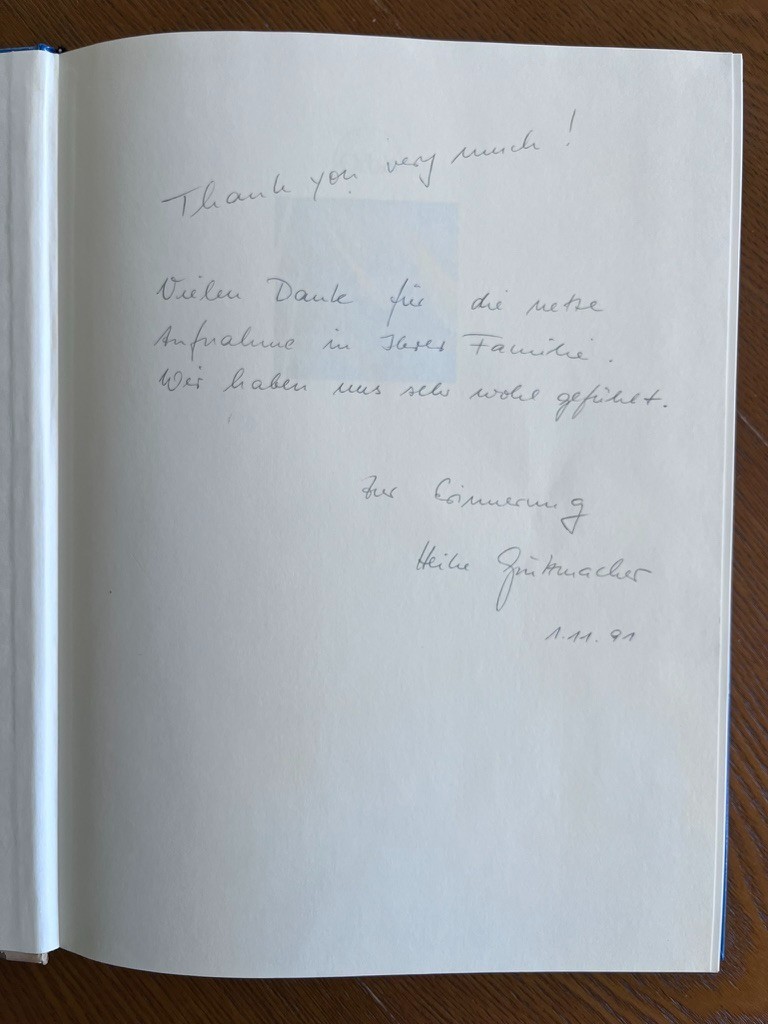 Thank you very much!
Vielen Dank für die nette
Aufnahme in Ihrer Familie.
Wir haben uns sehr wohl gefühlt.
Zur Erinnerung
Heike
1.11.91